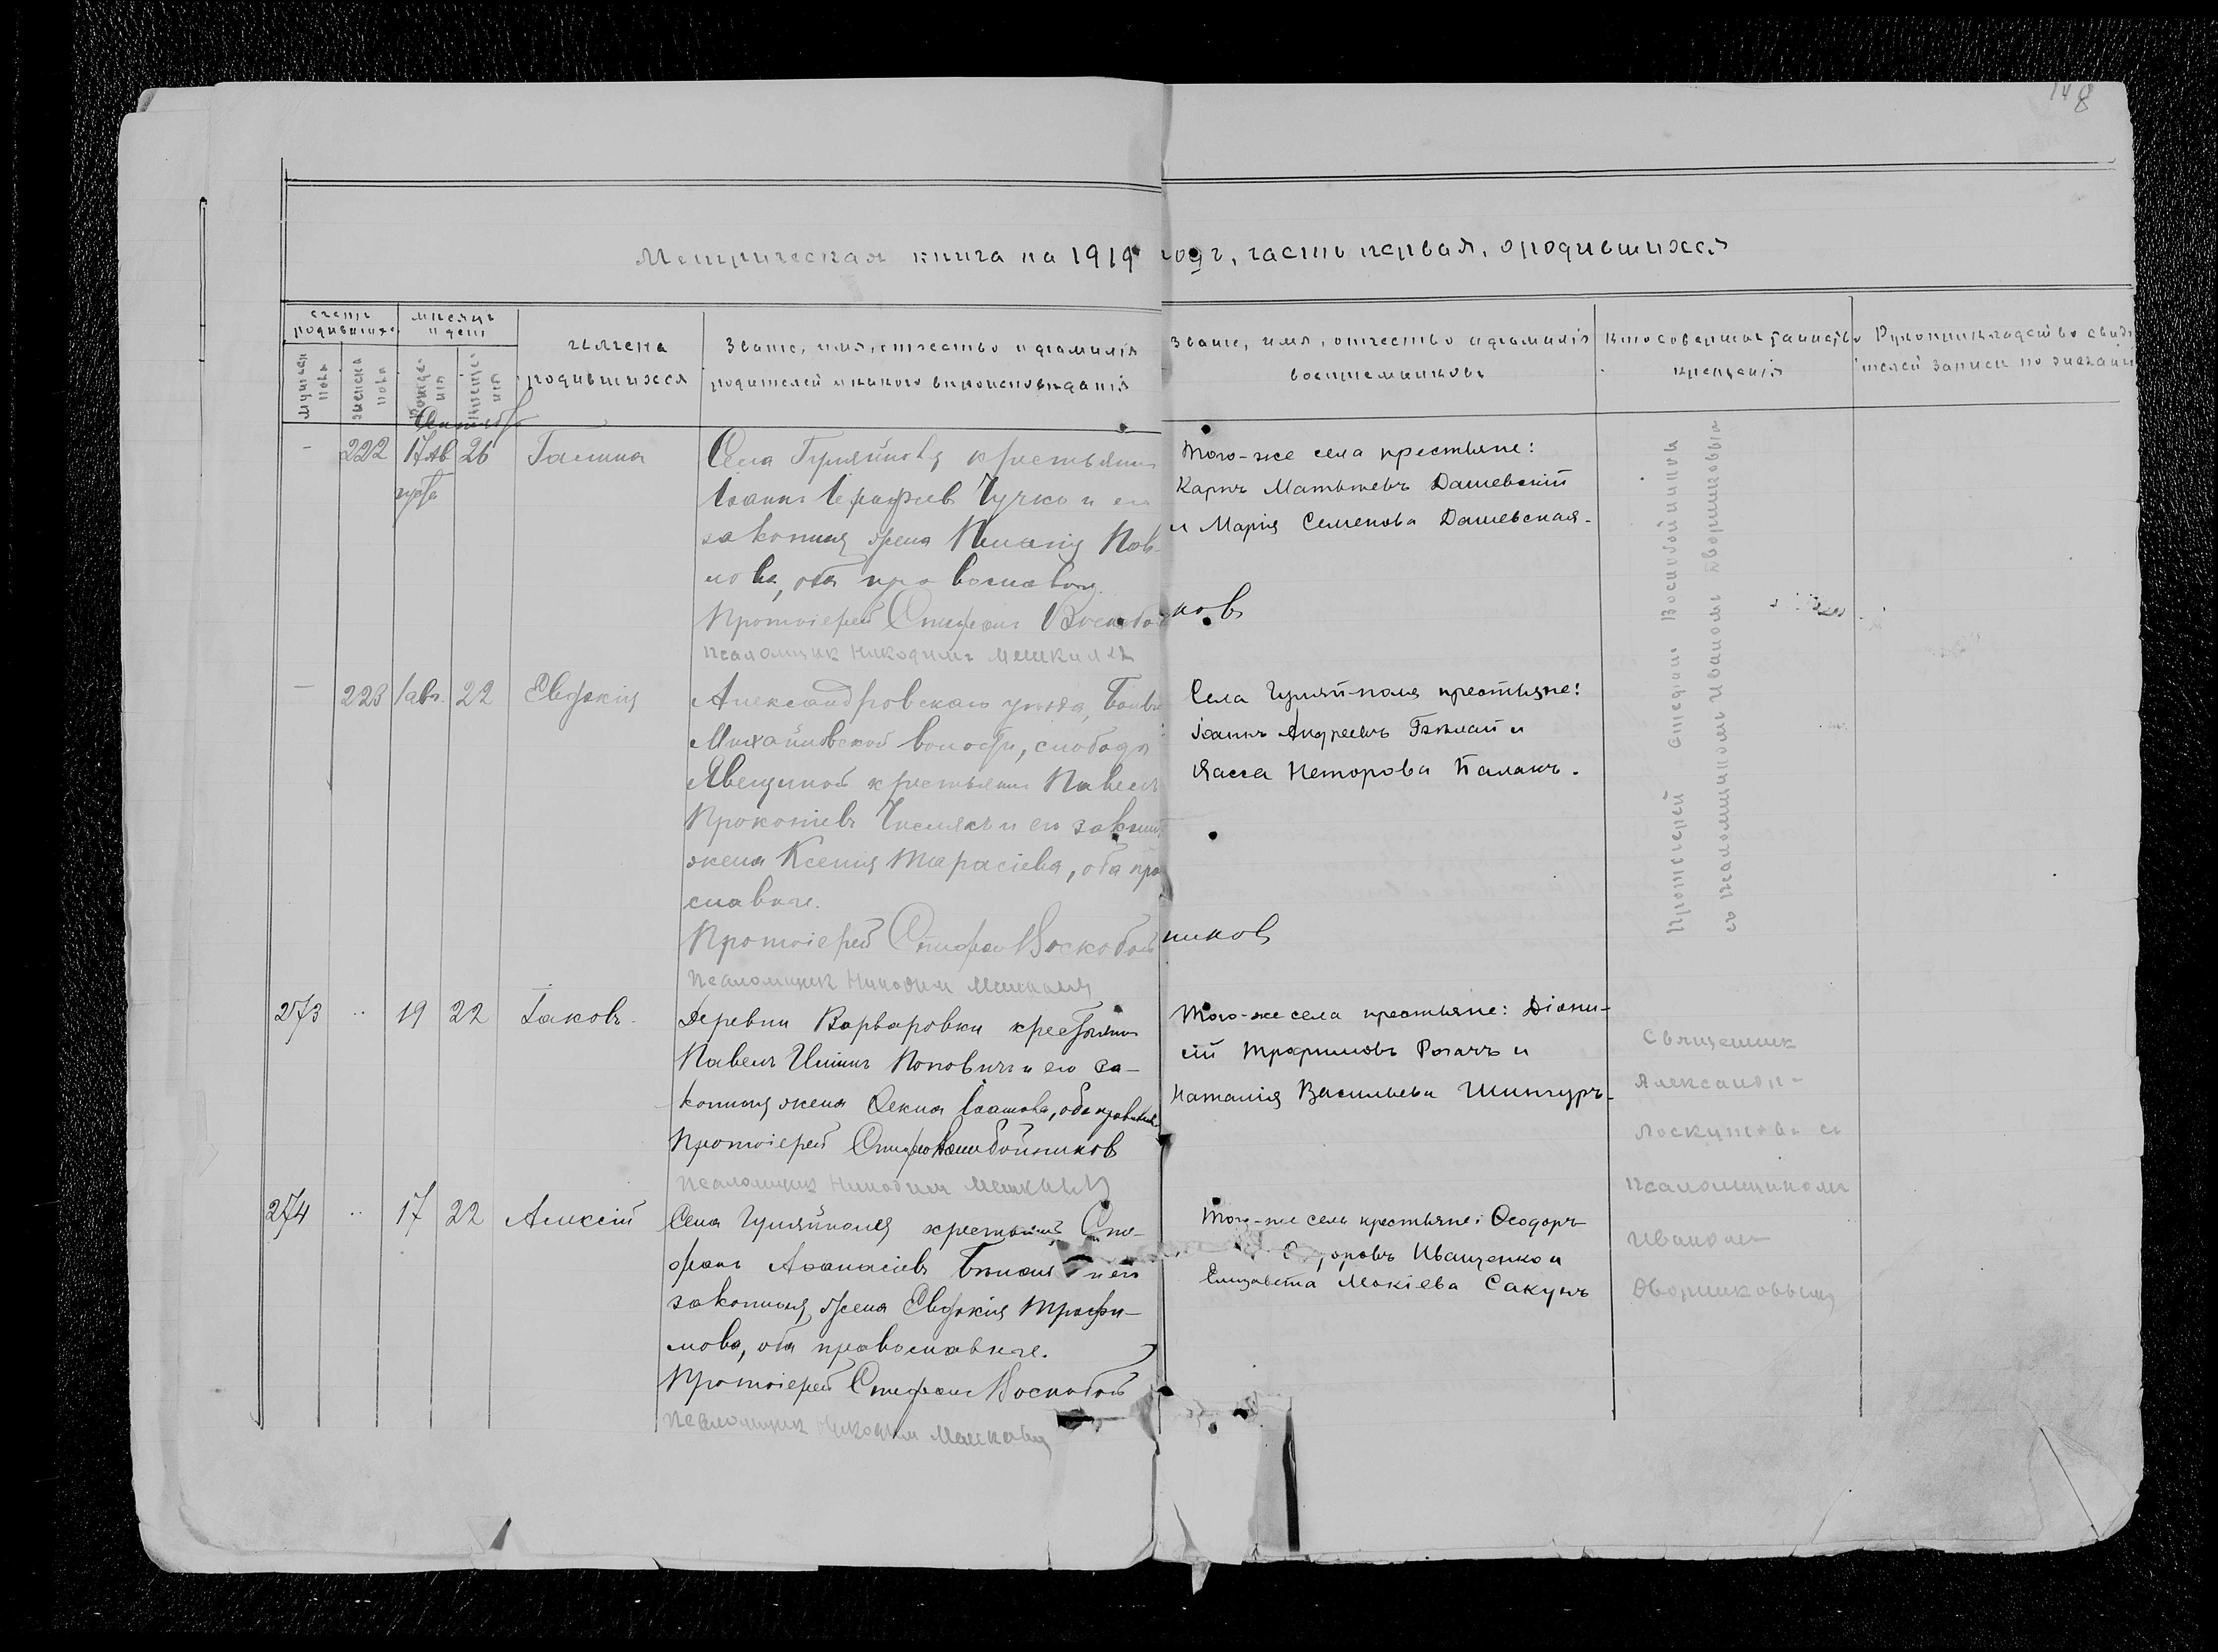 148
Метрическая книга на 1919 годъ, часть первая, о родившихся
счетъ родившихся
мѣсяцъ и день
мужеска пола
женска пола
рожденія
крещенія
имена родившихся
Званіе, имя, отчество и фамилія
родителей и какого вѣроисповѣданія
Званіе, имя, отчество и фамилія
воспріемниковъ
Кто совершалъ таинство
крещенія
Рукоприкладство свидѣ
телей записи по желанію
- 222 17 26 Галина
Села Гуляйполя крестьянинъ
Іоаннъ Чучко и его
законная жена Пав-
лова, оба православные.
Протоіерей Стефанъ Воскобойников
Псаломщик Никодимъ
Того-же села крестьяне:
Карпъ Матвѣевъ Дашевскій
и Марія Семенова Дашевская.
Протоіерей Стефанъ Воскобойниковъ
съ псаломщикомъ Иваномъ Дворниковымъ
— 223 1 авг. 22 Евдокія
Александровскаго уѣзда,
Михайловской волости, слободы
крестьянинъ Павелъ
Прокопіевъ и его законная
жена Ксенія Тарасіева, оба право
славные.
Протоіерей Стефан Воскобойников
Псаломщик Никодим
Села Гуляй-поля крестьяне:
Іоаннъ Андреевъ и
Васса Несторова
273 .. 19 22 Іаковъ
Деревни Варваровки крестьянинъ
Павелъ Поповичъ и его за-
конная жена Ѳекла, оба православные
Протоіерей Стефан Воскобойников
Псаломщик Никодим
Того-же села крестьяне: Діони-
сій Трофимовъ Рогачъ и
Наталія Васильева
Священник
Александр
Лоскутова съ
псаломщикомъ
Иваномъ
Дворниковымъ
274 .. 17 22 Алексій
Села Гуляйполя крестьянинъ Сте-
фанъ Аѳанасіевъ и его
законная жена Евдокія Трофи-
мова, оба православные.
Протоіерей Стефанъ Воскобой
Псаломщик Никодим
Того-же села крестьяне: Ѳеодоръ
Иващенко и
Елизавета Мокіева Сакунъ